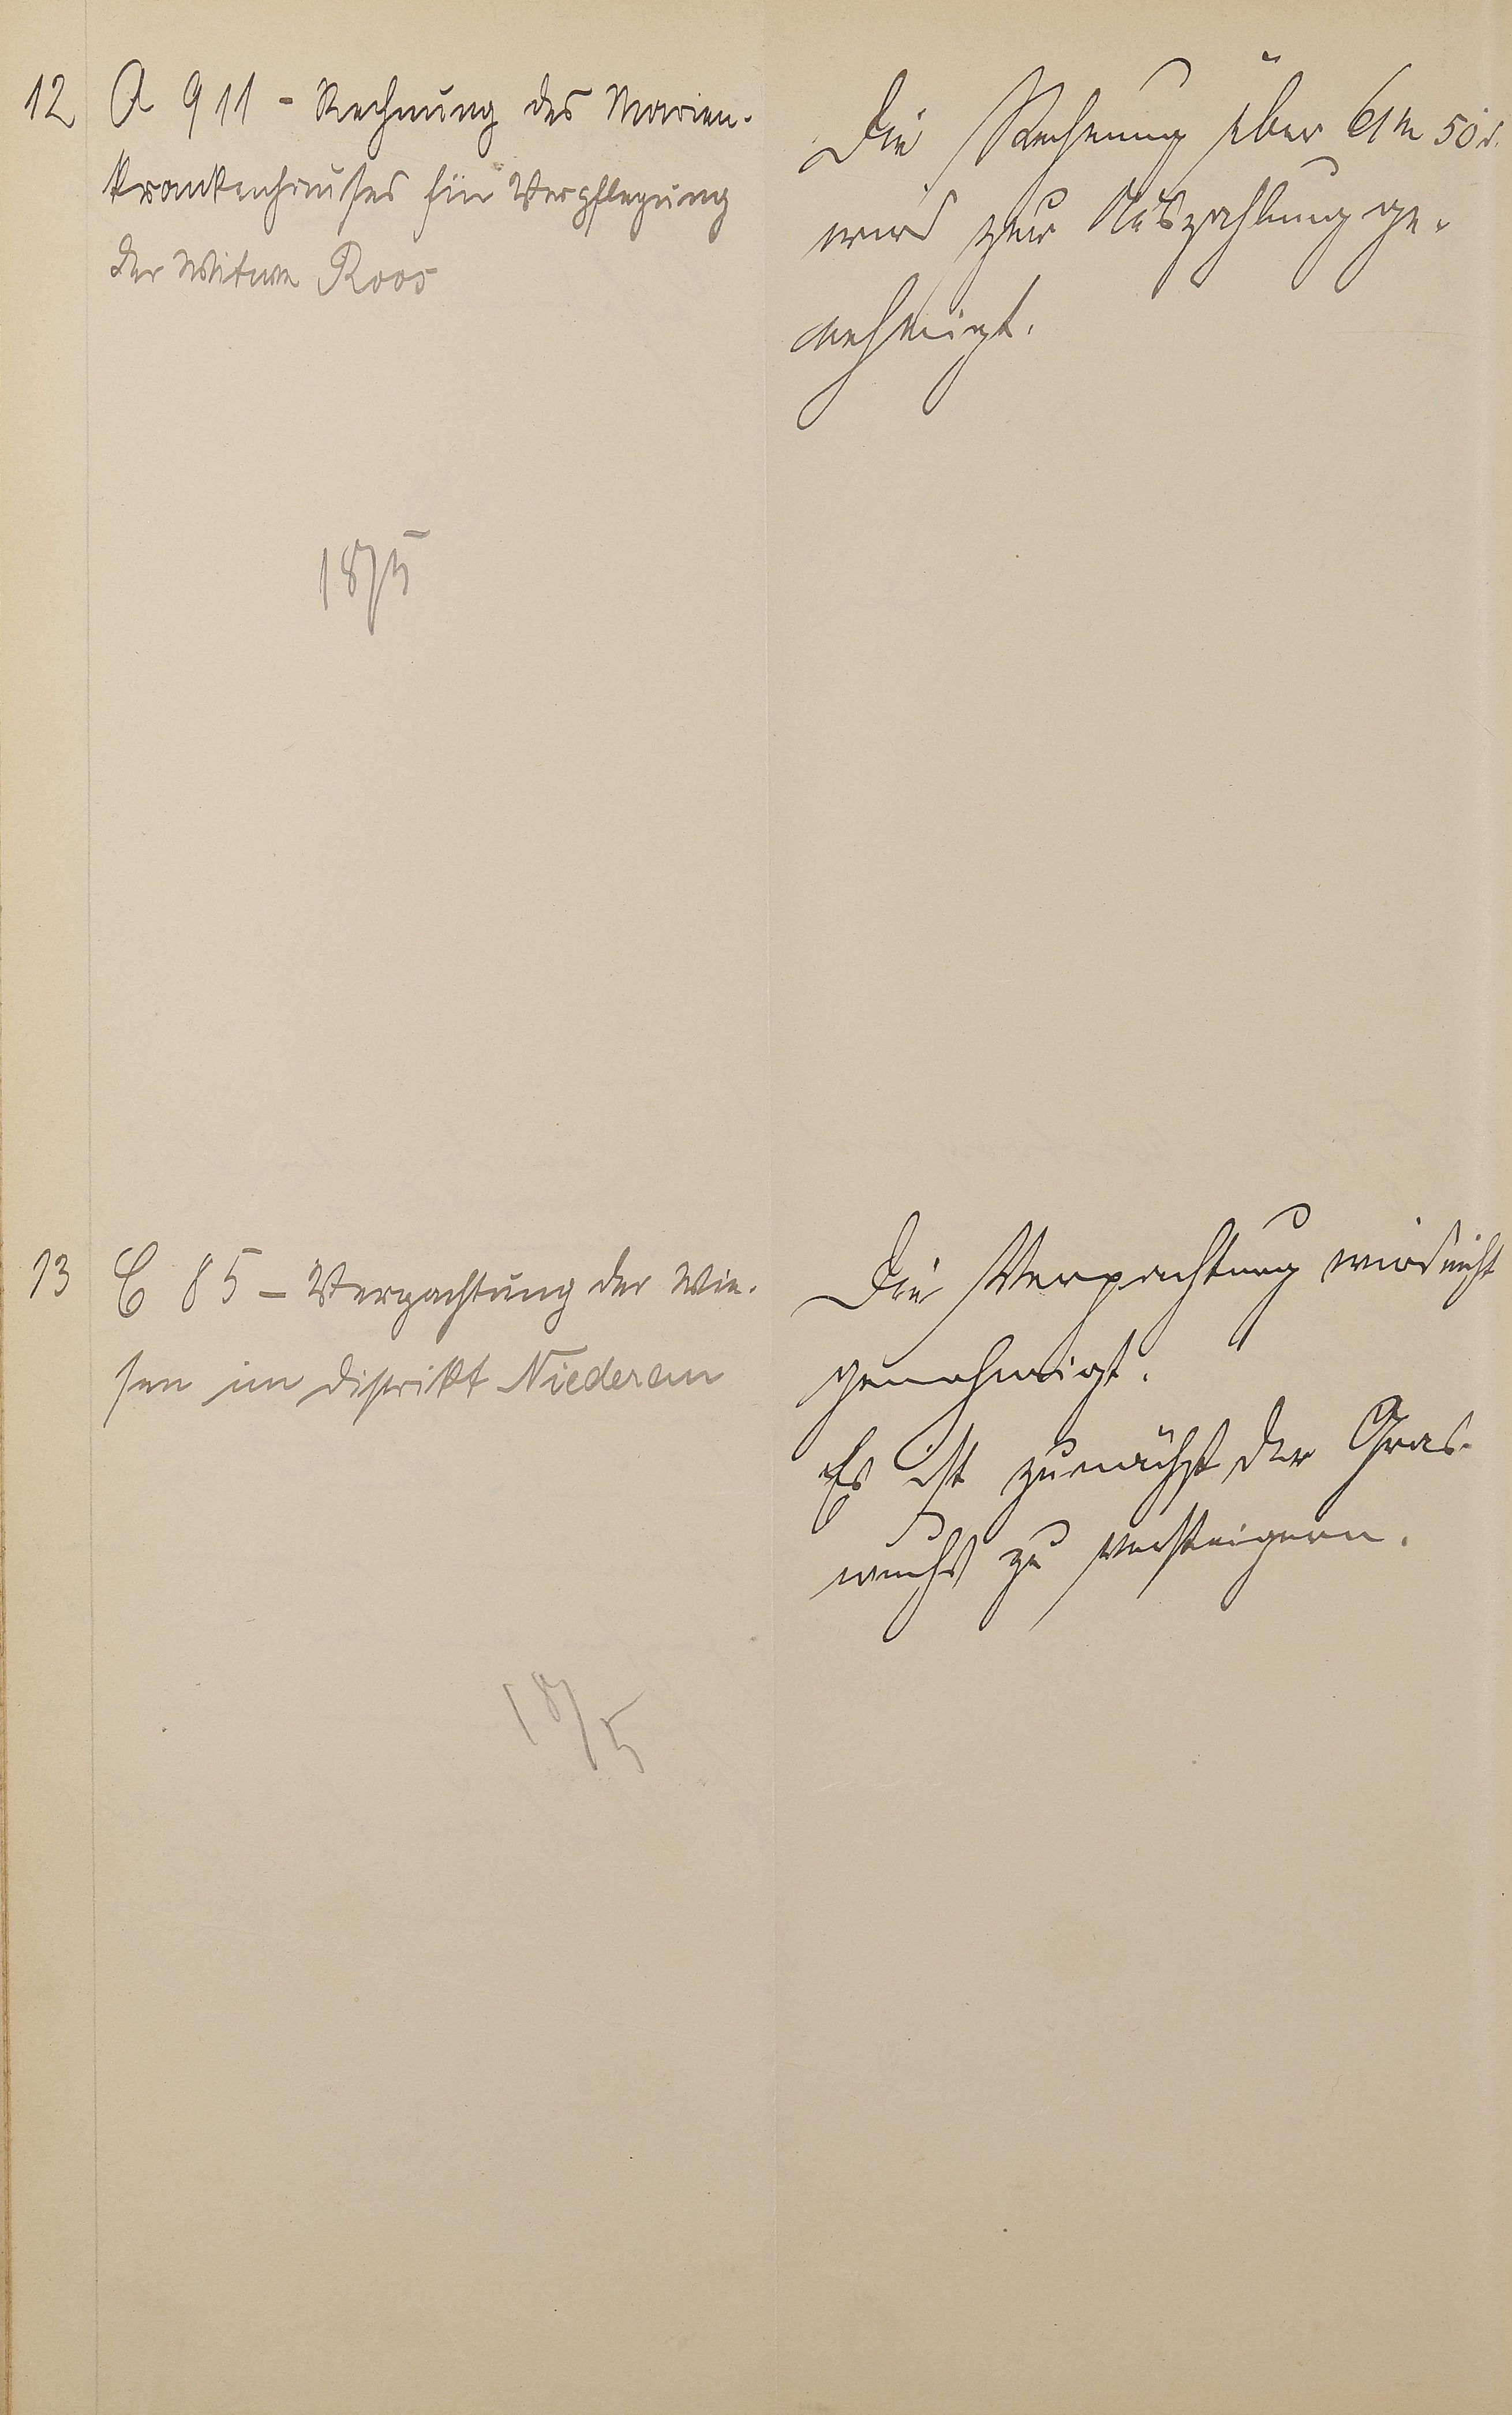 12 A 911 - Rechnung des Marien-
krankenhauses für Verpflegung
der Witwe Roos
Die Rechnung über 61 M 50 d.
wird zur Auszahlung ge-
nehmigt.
18/5
13 C 85 - Verpachtung der Wie-
sen im Distrikt Niederau
Die Verpachtung wird nicht
genehmigt.
Es ist zunächst der Gras-
wuchs zu versteigern.
18/5